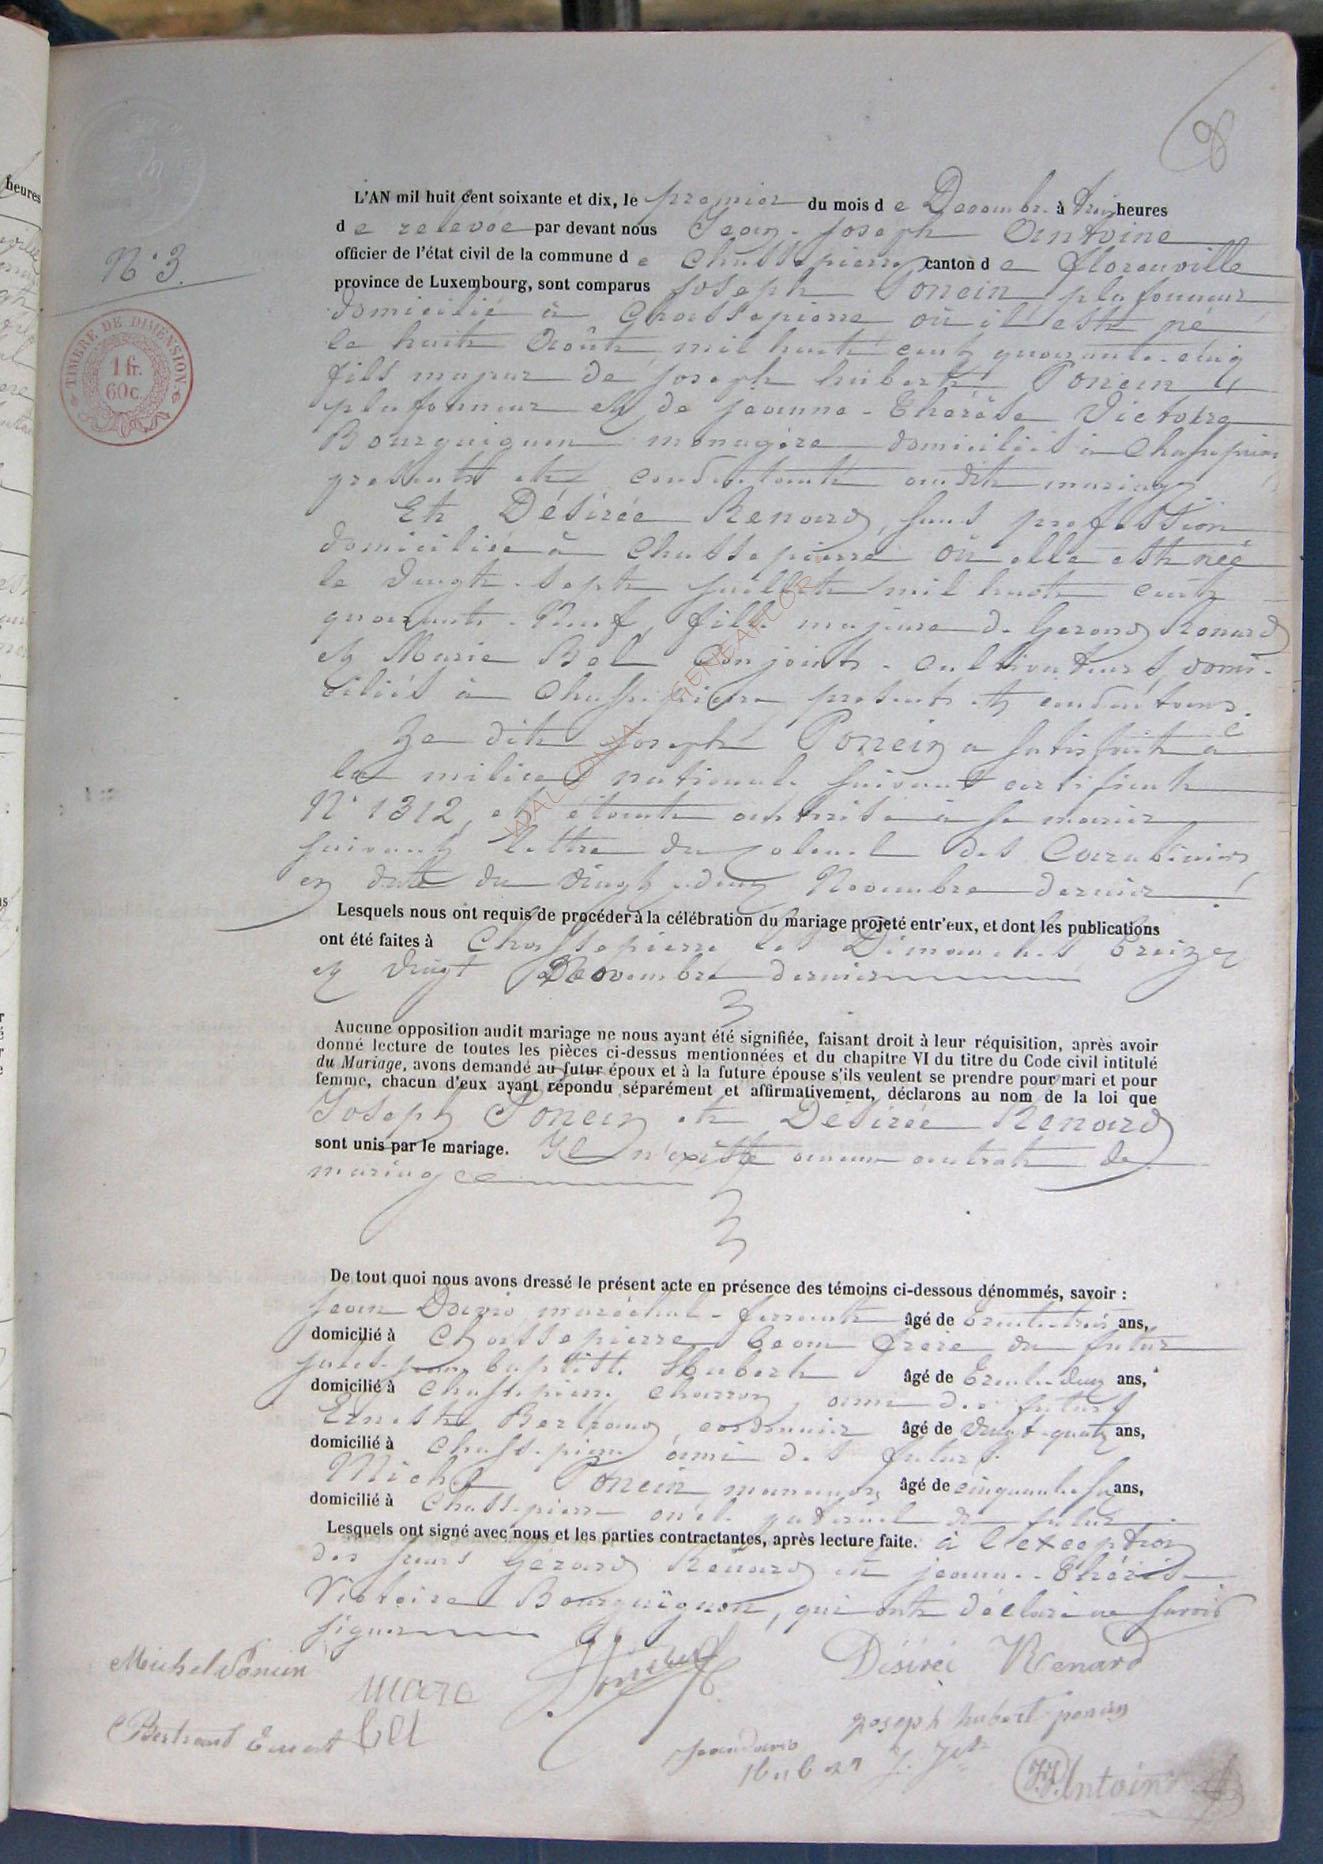 8
heures
N° 3.
TIMBRE DE DIMENSION
1 fr.
60 c.
L'AN mil huit cent soixante et dix, le premier du mois de Decembre à trois heures
de relevée par devant nous Jean-Joseph Antoine
officier de l'état civil de la commune de Chassepierre canton de florenville
province de Luxembourg, sont comparus Joseph Poncin plafonneur
domicilié à Chassepierre où il est né
le huit Août mil huit cent quarante-cinq
fils majeur de joseph hubert Poncin,
plafonneur et de jeanne-Thérèse Victoire
Bourguignon ménagère domiciliés à Chassepierre
présents et consentants audit mariage
Et Désirée Renard, sans profession
domiciliée à Chassepierre où elle est née
le vingt-sept juillet mil huit cent
quarante-neuf, fille majeure de Gerard Renard
et Marie Bel conjoints-cultivateurs, domi-
ciliés à Chassepierre présents et consentans.
Le dit Joseph Poncin a satisfait à
la milice nationale suivant certificat
N° 1312, et étant autorisé à se marier
suivant lettre du colonel des Carabiniers
en date du vingt-deux Novembre dernier
Lesquels nous ont requis de procéder à la célébration du mariage projeté entr'eux, et dont les publications
ont été faites à Chassepierre les Dimanches treize
et vingt Novembre dernier
Aucune opposition audit mariage ne nous ayant été signifiée, faisant droit à leur réquisition, après avoir
donné lecture de toutes les pièces ci-dessus mentionnées et du chapitre VI du titre du Code civil intitulé
du Mariage, avons demandé au futur époux et à la future épouse s'ils veulent se prendre pour mari et pour
femme, chacun d'eux ayant répondu séparément et affirmativement, déclarons au nom de la loi que
Joseph Poncin et Désirée Renard
sont unis par le mariage. Il n'existe aucun contrat de
mariage
De tout quoi nous avons dressé le présent acte en présence des témoins ci-dessous dénommés, savoir :
Jean David maréchal-ferrant âgé de trente-trois ans,
domicilié à Chassepierre beau frère du futur
Jules-jean baptiste Hubert âgé de trente-deux ans,
domicilié à Chassepierre charron, ami des futurs
Ernest Bertrand cordonnier âgé de vingt-quatre ans,
domicilié à Chassepierre ami des futurs.
Michel Poncin, âgé de cinquante-six ans,
domicilié à Chassepierre oncle paternel du futur
Lesquels ont signé avec nous et les parties contractantes, après lecture faite. à l'exception
des Gérard Renard et jeanne-Thérèse
Victoire Bourguignon, qui ont déclaré ne savoir
signer
Michel Poncin
marie
bel
Désirée Renard
Bertrand Ernest
joseph hubert poncin
Jean david
J. J. Antoine
WALLONIA GENEARCOR